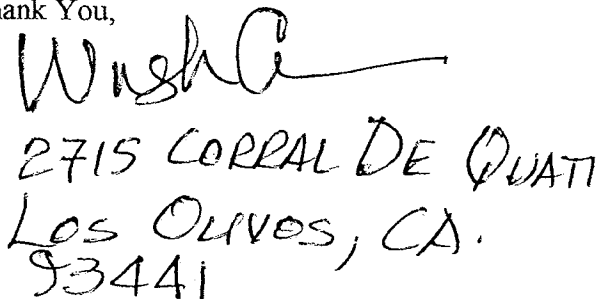 hank You,
2715 CORRAL DE QUATI
LOS OLIVOS, CA.
93441